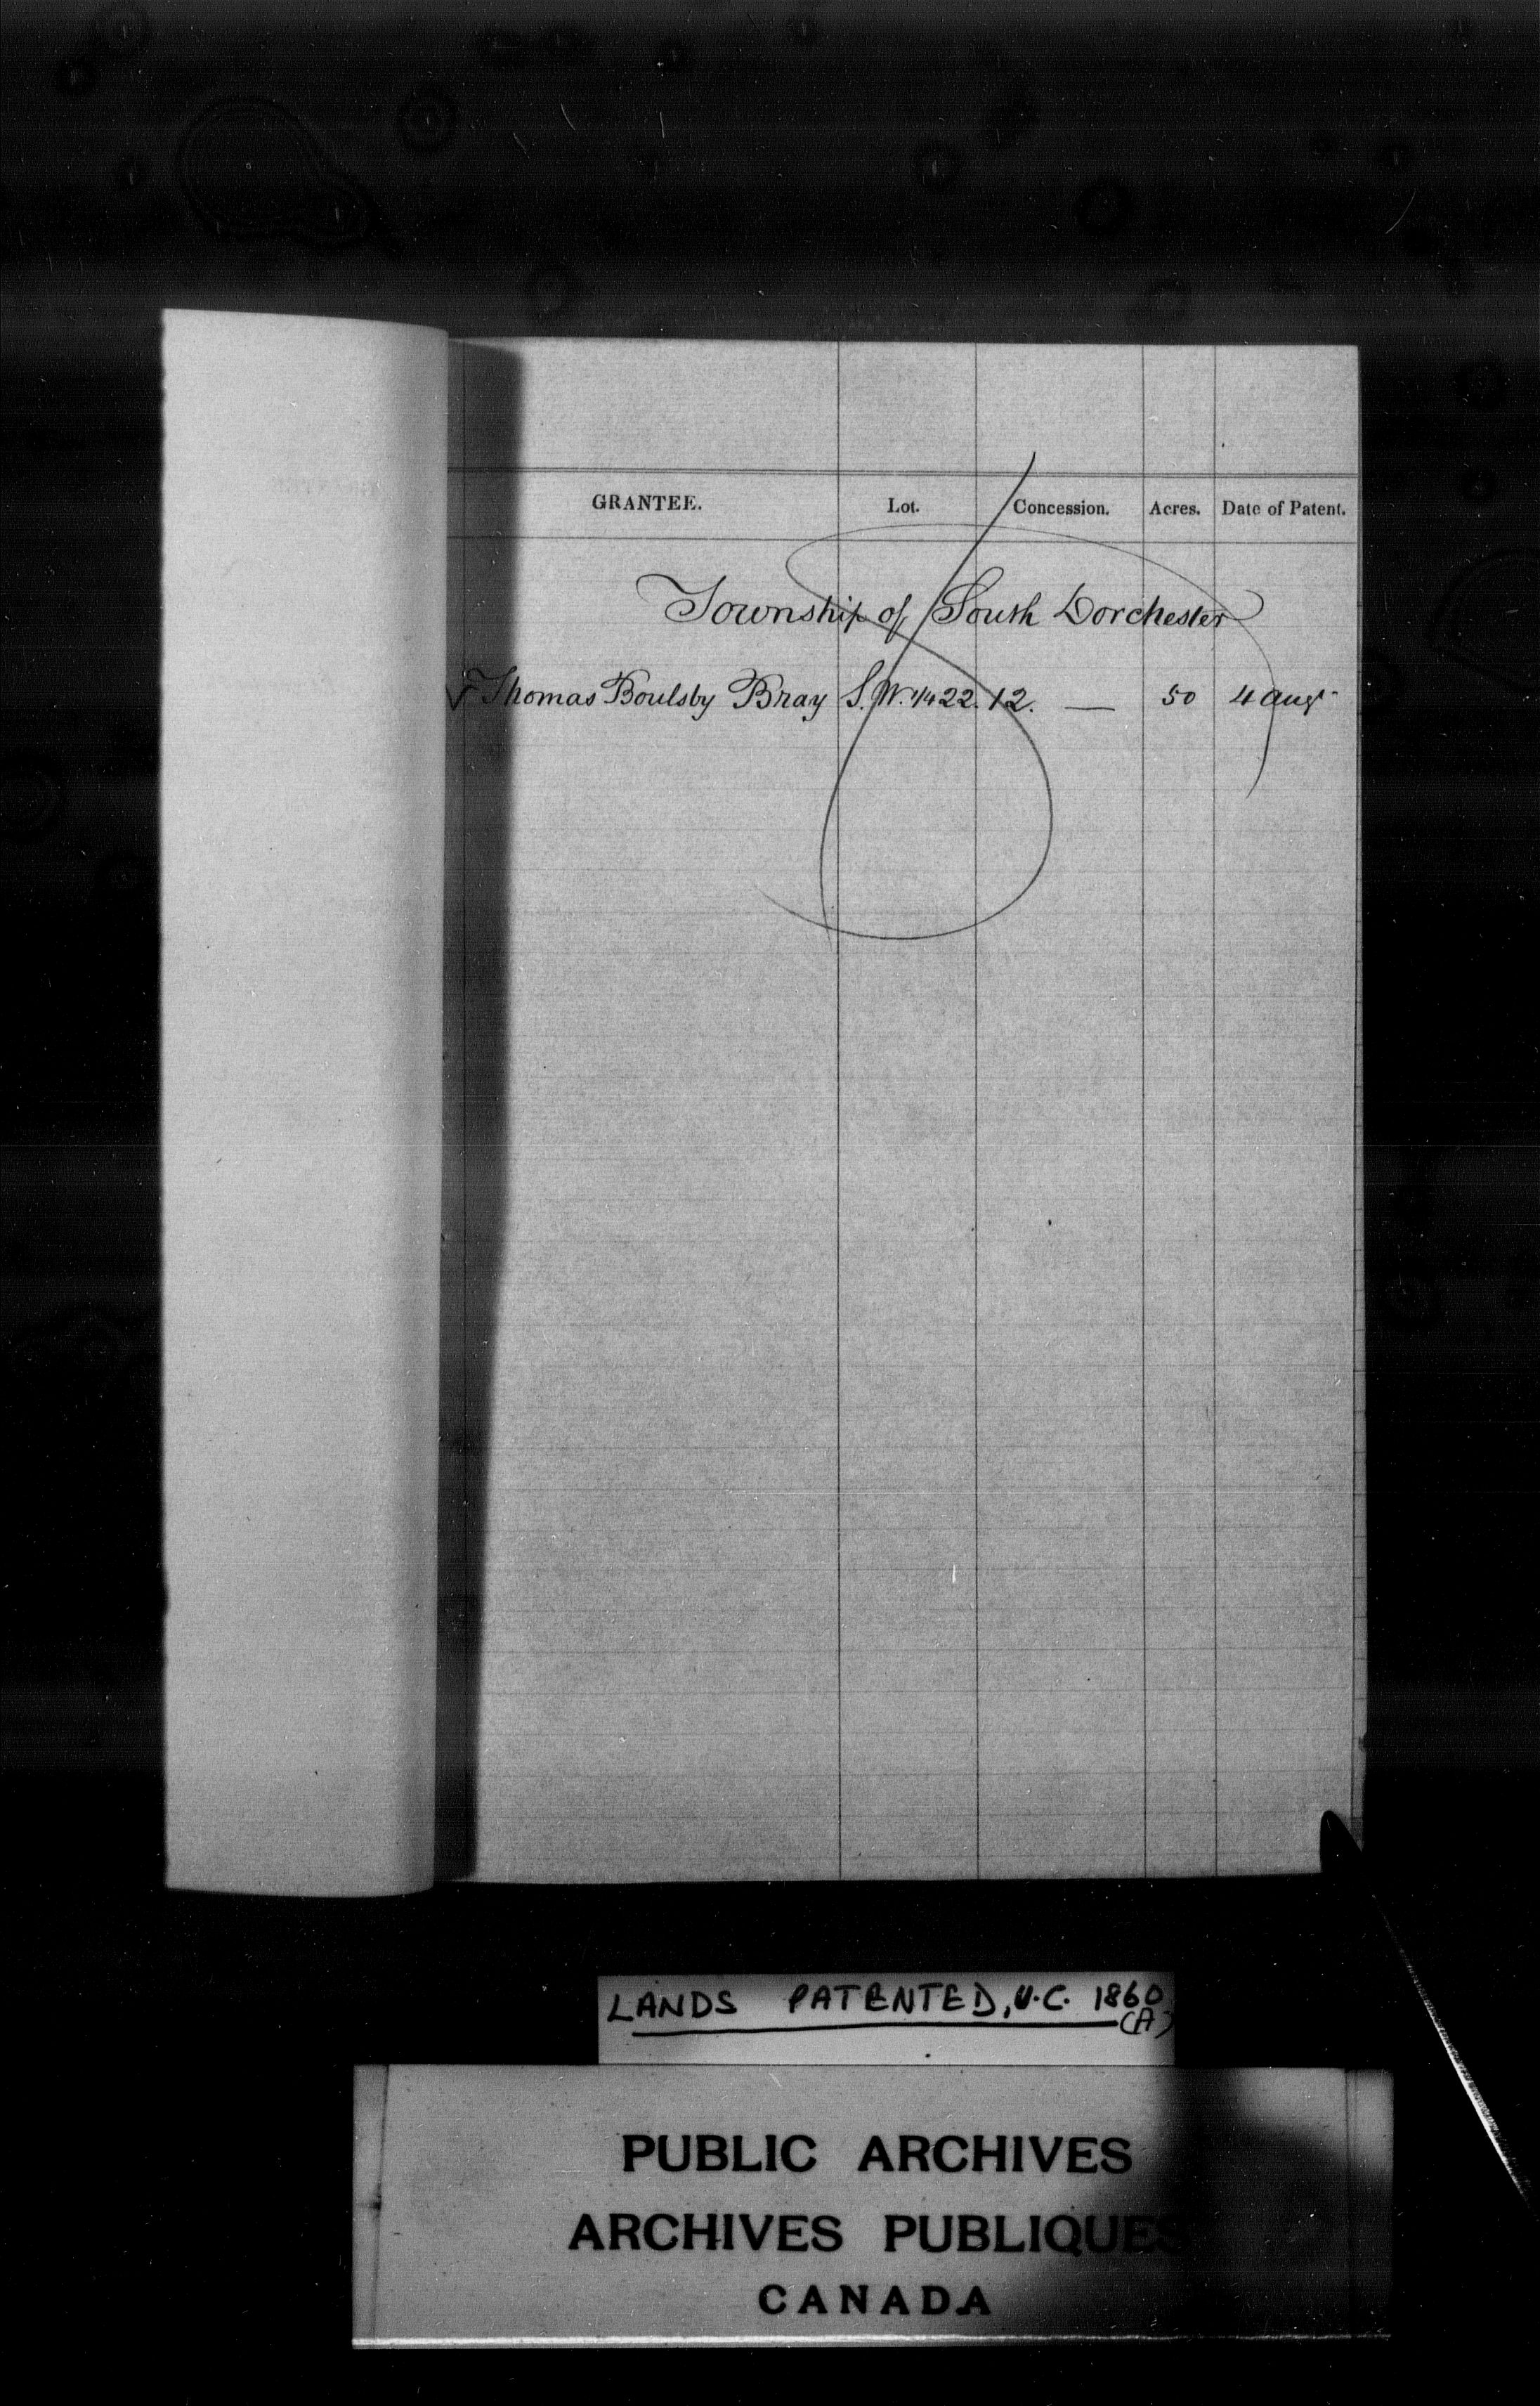 GRANTEE. Lot. Concession. Acres. Date of Patent.
Township of South Dorchester
Thomas Boulsby Bray S.W. 1/4 22. 12. — 50 4 Augt
LANDS PATENTED, U.C. 1860
(A)
PUBLIC ARCHIVES
ARCHIVES PUBLIQUES
CANADA